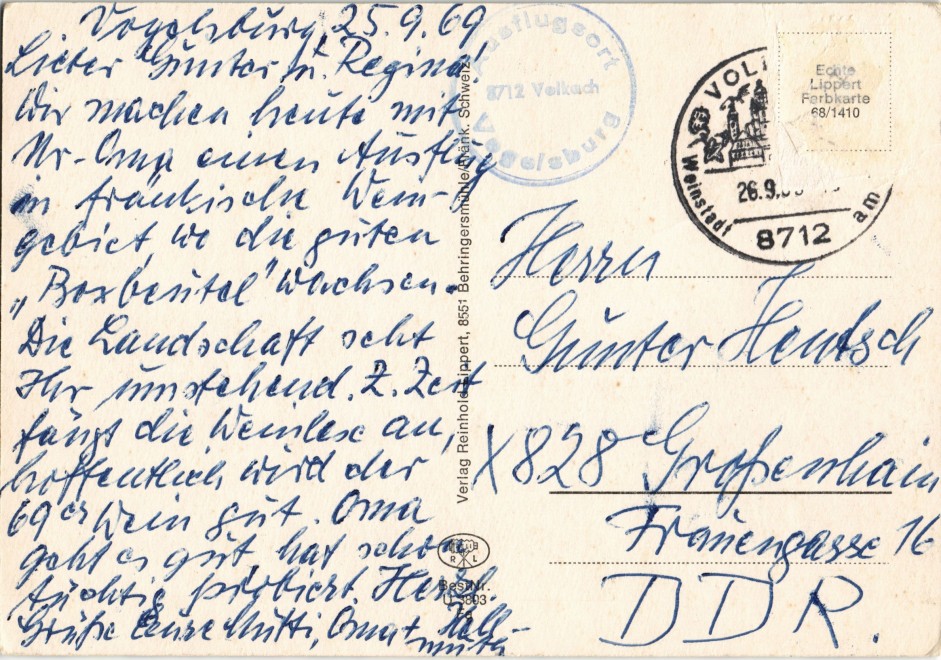 Vogelsburg, 25.9.69
Lieber Günter u. Regina!
Wir machen heute mit
Ihr. Oma einen Ausflug
in fränkische Wein-
gebiet, wo die guten
„Boxbeutel" wachsen.
Die Landschaft seht
Ihr umstehend. Z. Zeit
fängt die Weinlese an,
hoffentlich wird der
69er Wein gut. Oma
geht es gut hat schon
tüchtig probiert. Herzl.
Grüße Eure Mutti, Oma +
Ausflugsort
8712 Volkach
Vogelsburg
Verlag Reinhold Lippert, 8551 Behringersmühle/Fränk. Schweiz
R L
Best.Nr.
U 3803
Echte
Lippert
Farbkarte
68/1410
Weinstadt
26.9.
am
8712
Herrn
Günter Hentsch
X828 Großenhain
Frauengasse 16
DDR.